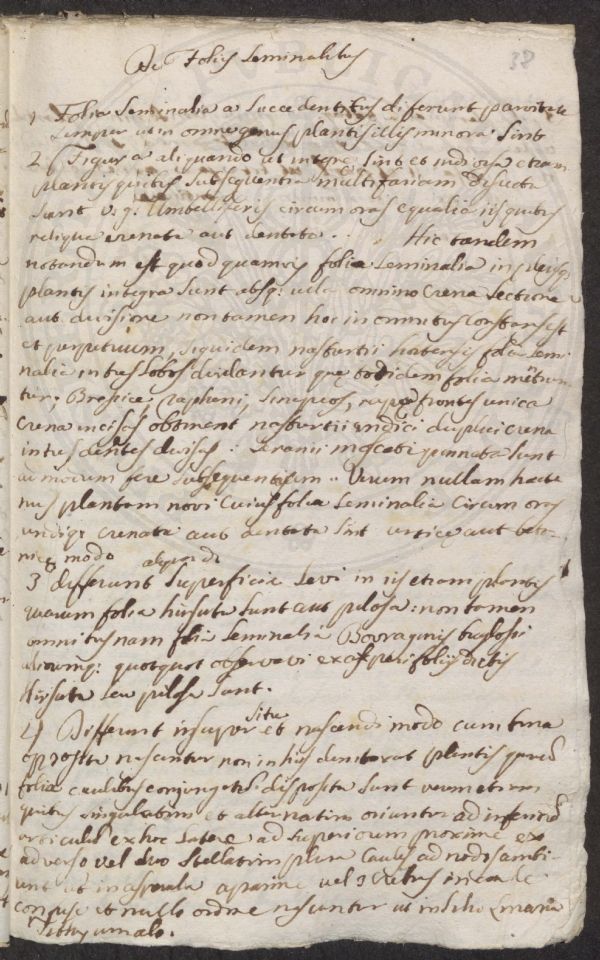 De Folijs Seminalibus
38
1 Folia Seminalia a Succedentibus differunt parvitate
Semper ut in omne genus plantis illis minora sint
2 Figura aliquando ut integre sint et indivisa etiam
plantis quibus subsequentia multifariam dissecta
sunt v.g. Umbelliferis circum oras equalia iis quibus
reliqua crenata aut dentata. Hic tandem
notandum est quod quamvis folia seminalia in
plantis integra sunt absq; ulla omnino Crena Sectione
aut divisione non tamen hoc in omnibus constans est
et perpetuum, siquidem nasturtii hortensis folia semi
nalia in tres lobos dividantur quę totidem folia
tur; Brassice, Raphani, Sinapeos, unica
Crena incisos obtinent nasturtii indici duplici crena
in tres dentes divisos: Geranii moscati pinnata sunt
ad morum fere subsequentium.. Verum nullam hacte
nus plantam novi cuius folia Seminalia Circum oras
undiq; crenata aut dentata sint urticę aut beto-
nicę modo
3 differunt Superficie Levi in iis etiam plantis
quarum folia hirsuta sunt aut pilosa: non tamen
omnibus nam folia Seminalia Borraginis buglossi
aliorumq; quotquot observavi ex asperifoliis dictis
Hirsuta seu pilosa sunt.
4 Differunt insuper situ et nascendi modo cum bina
opposita nascantur non in his dumtaxat plantis quarum
folia caulibus conjugatim disposita sunt verum etiam
quibus singulatim et alternatim oriuntur ad inferiora
ex hoc latere ad superiorum proxime ex
adverso vel ubi stellatim plura Caules ad nodos ambi-
unt ut in asperula aparine vel Crebris in caule
confuse et nullo ordine nascuntur ut in Lilio